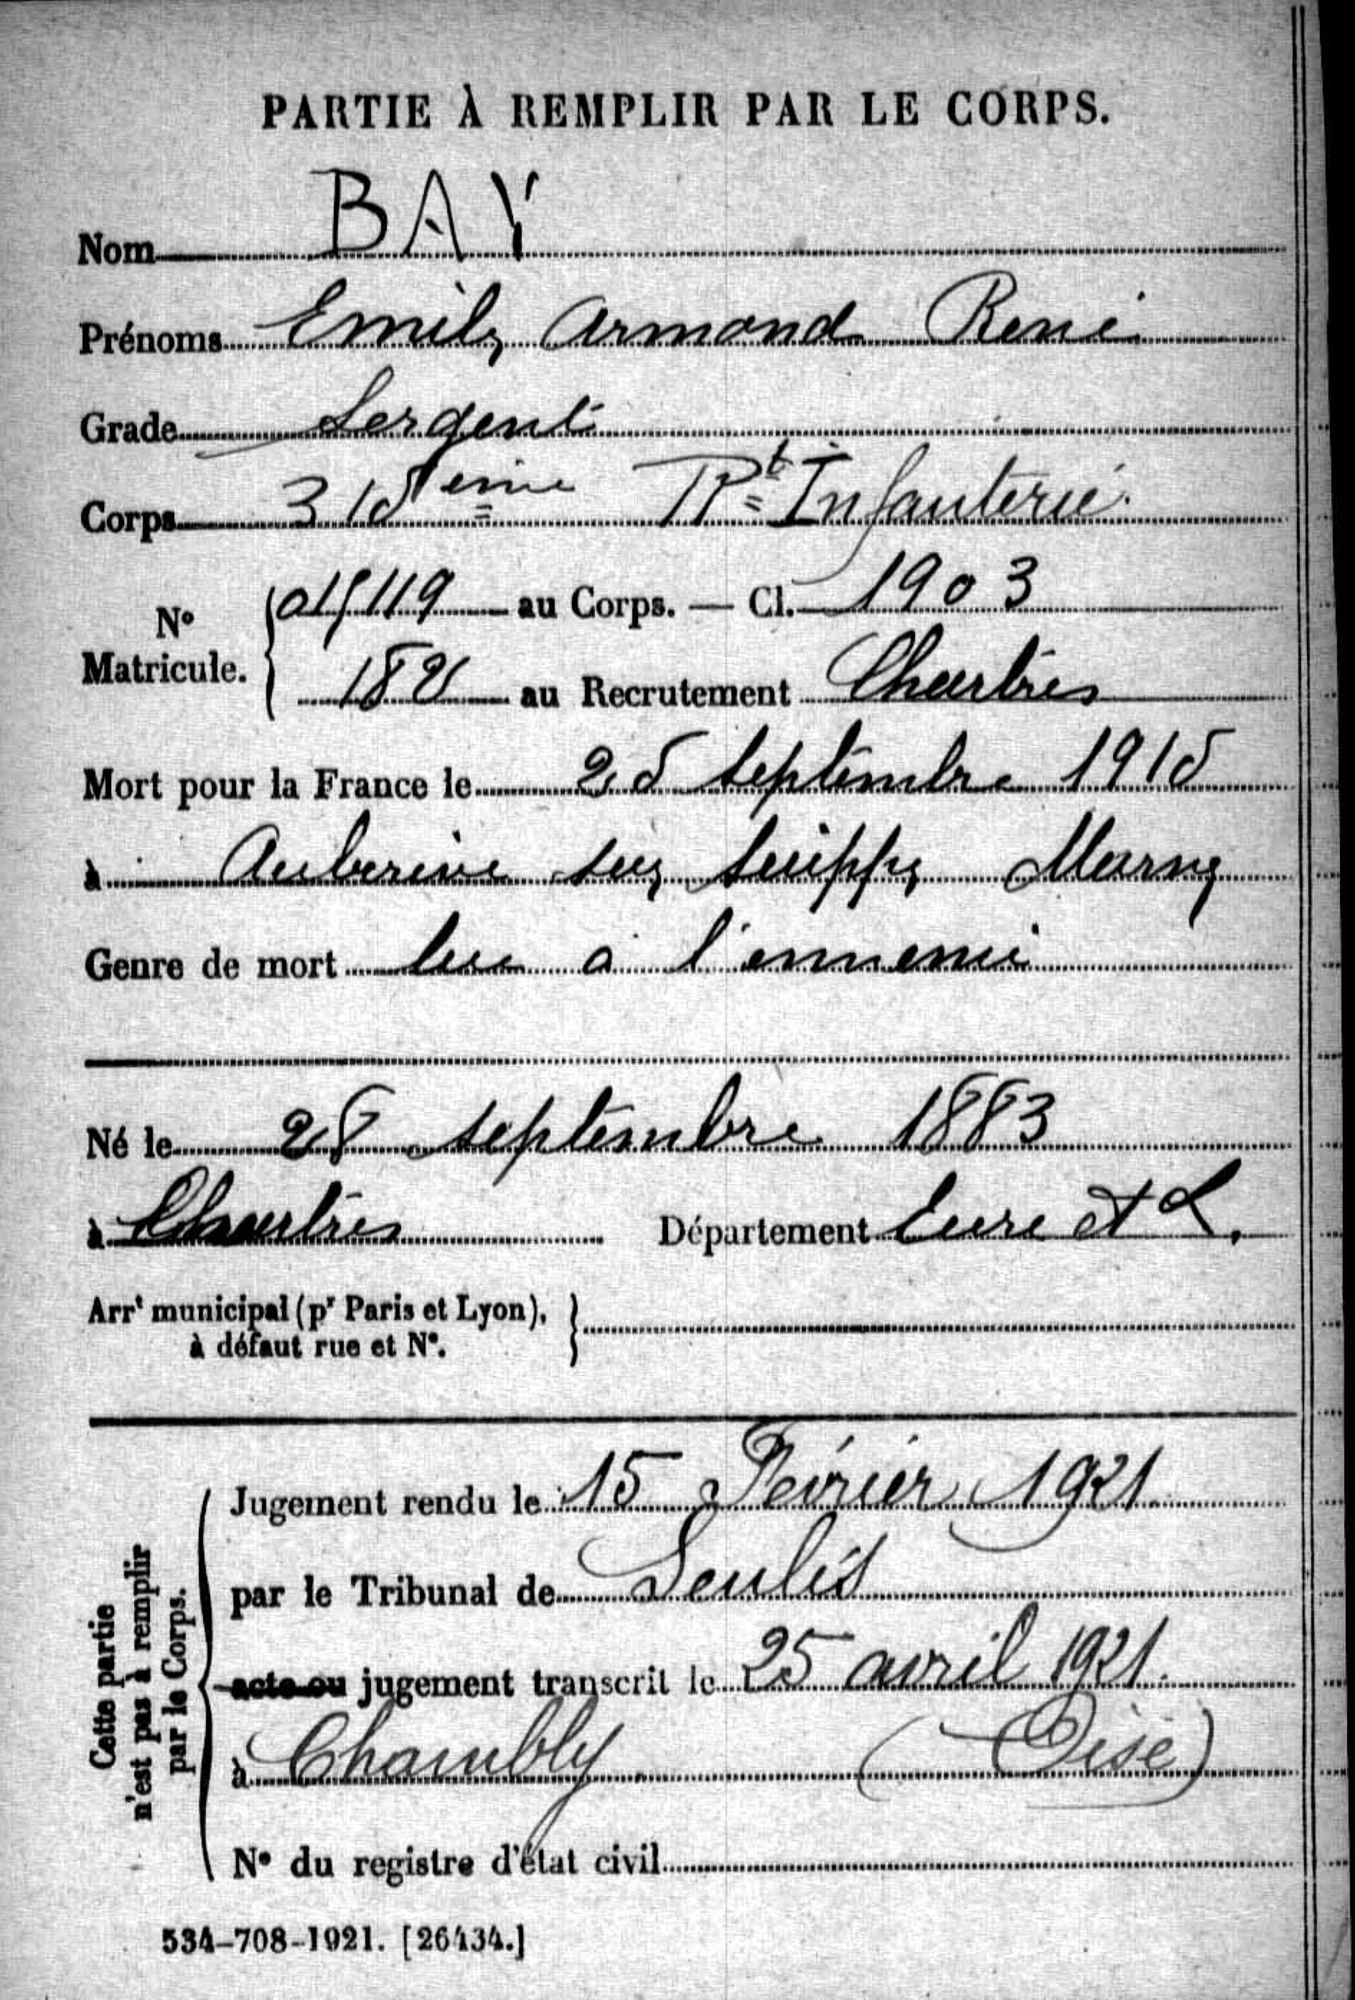 PARTIE À REMPLIR PAR LE CORPS.
Nom BAY
Prénoms Emile Armand René
Grade Sergent
Corps 315 ème Rt Infanterie
N° Matricule. 015119 au Corps. — Cl. 1903
au Recrutement Chartres
Mort pour la France le 25 septembre 1915
à Auberive sur Suippe Marne
Genre de mort tué à l'ennemi
Né le 28 septembre 1883
à Chartres Département Eure et L.
Arrt municipal (pr Paris et Lyon), à défaut rue et N°.
Cette partie n'est pas à remplir par le Corps.
Jugement rendu le 15 Février 1921
par le Tribunal de Senlis
acte ou jugement transcrit le 25 avril 1921.
à Chambly (Oise)
N° du registre d'état civil
534-708-1921. [26434.]